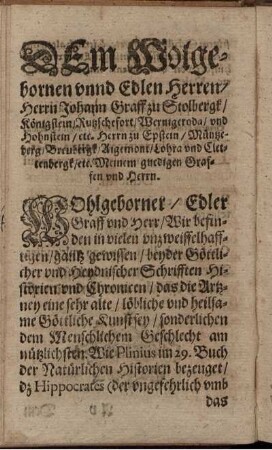 DEm Wolge-
bornen vnnd Edlen Herren/
Herrn Johann Graff zu Stolbergk/
Königstein/Rutzschefort/Wernigeroda/vnd
Hohnstein/etc. Herrn zu Epstein/Müntze-
berg/Breubergk/Aigemont/Lohra vnd Clet-
tenbergk/etc. Meinem gnedigen Graf-
fen vnd Herrn.
WOhlgeborner/Edler
Graff vnd Herr/Wir befin-
den in vielen vnzweiffelhaff-
tigen/gantz gewissen/beyder Göttli-
cher vnd Heydnischer Schrifften Hi-
storien/vnd Chronicen/das die Artz-
ney eine sehr alte/löbliche vnd heilsa-
me Göttliche Kunst sey/sonderlichen
dem Menschlichem Geschlecht am
nützlichsten. Wie Plinius im 29. Buch
der Natürlichen Historien bezeuget/
dz Hippocrates (der vngefehrlich vmb
das